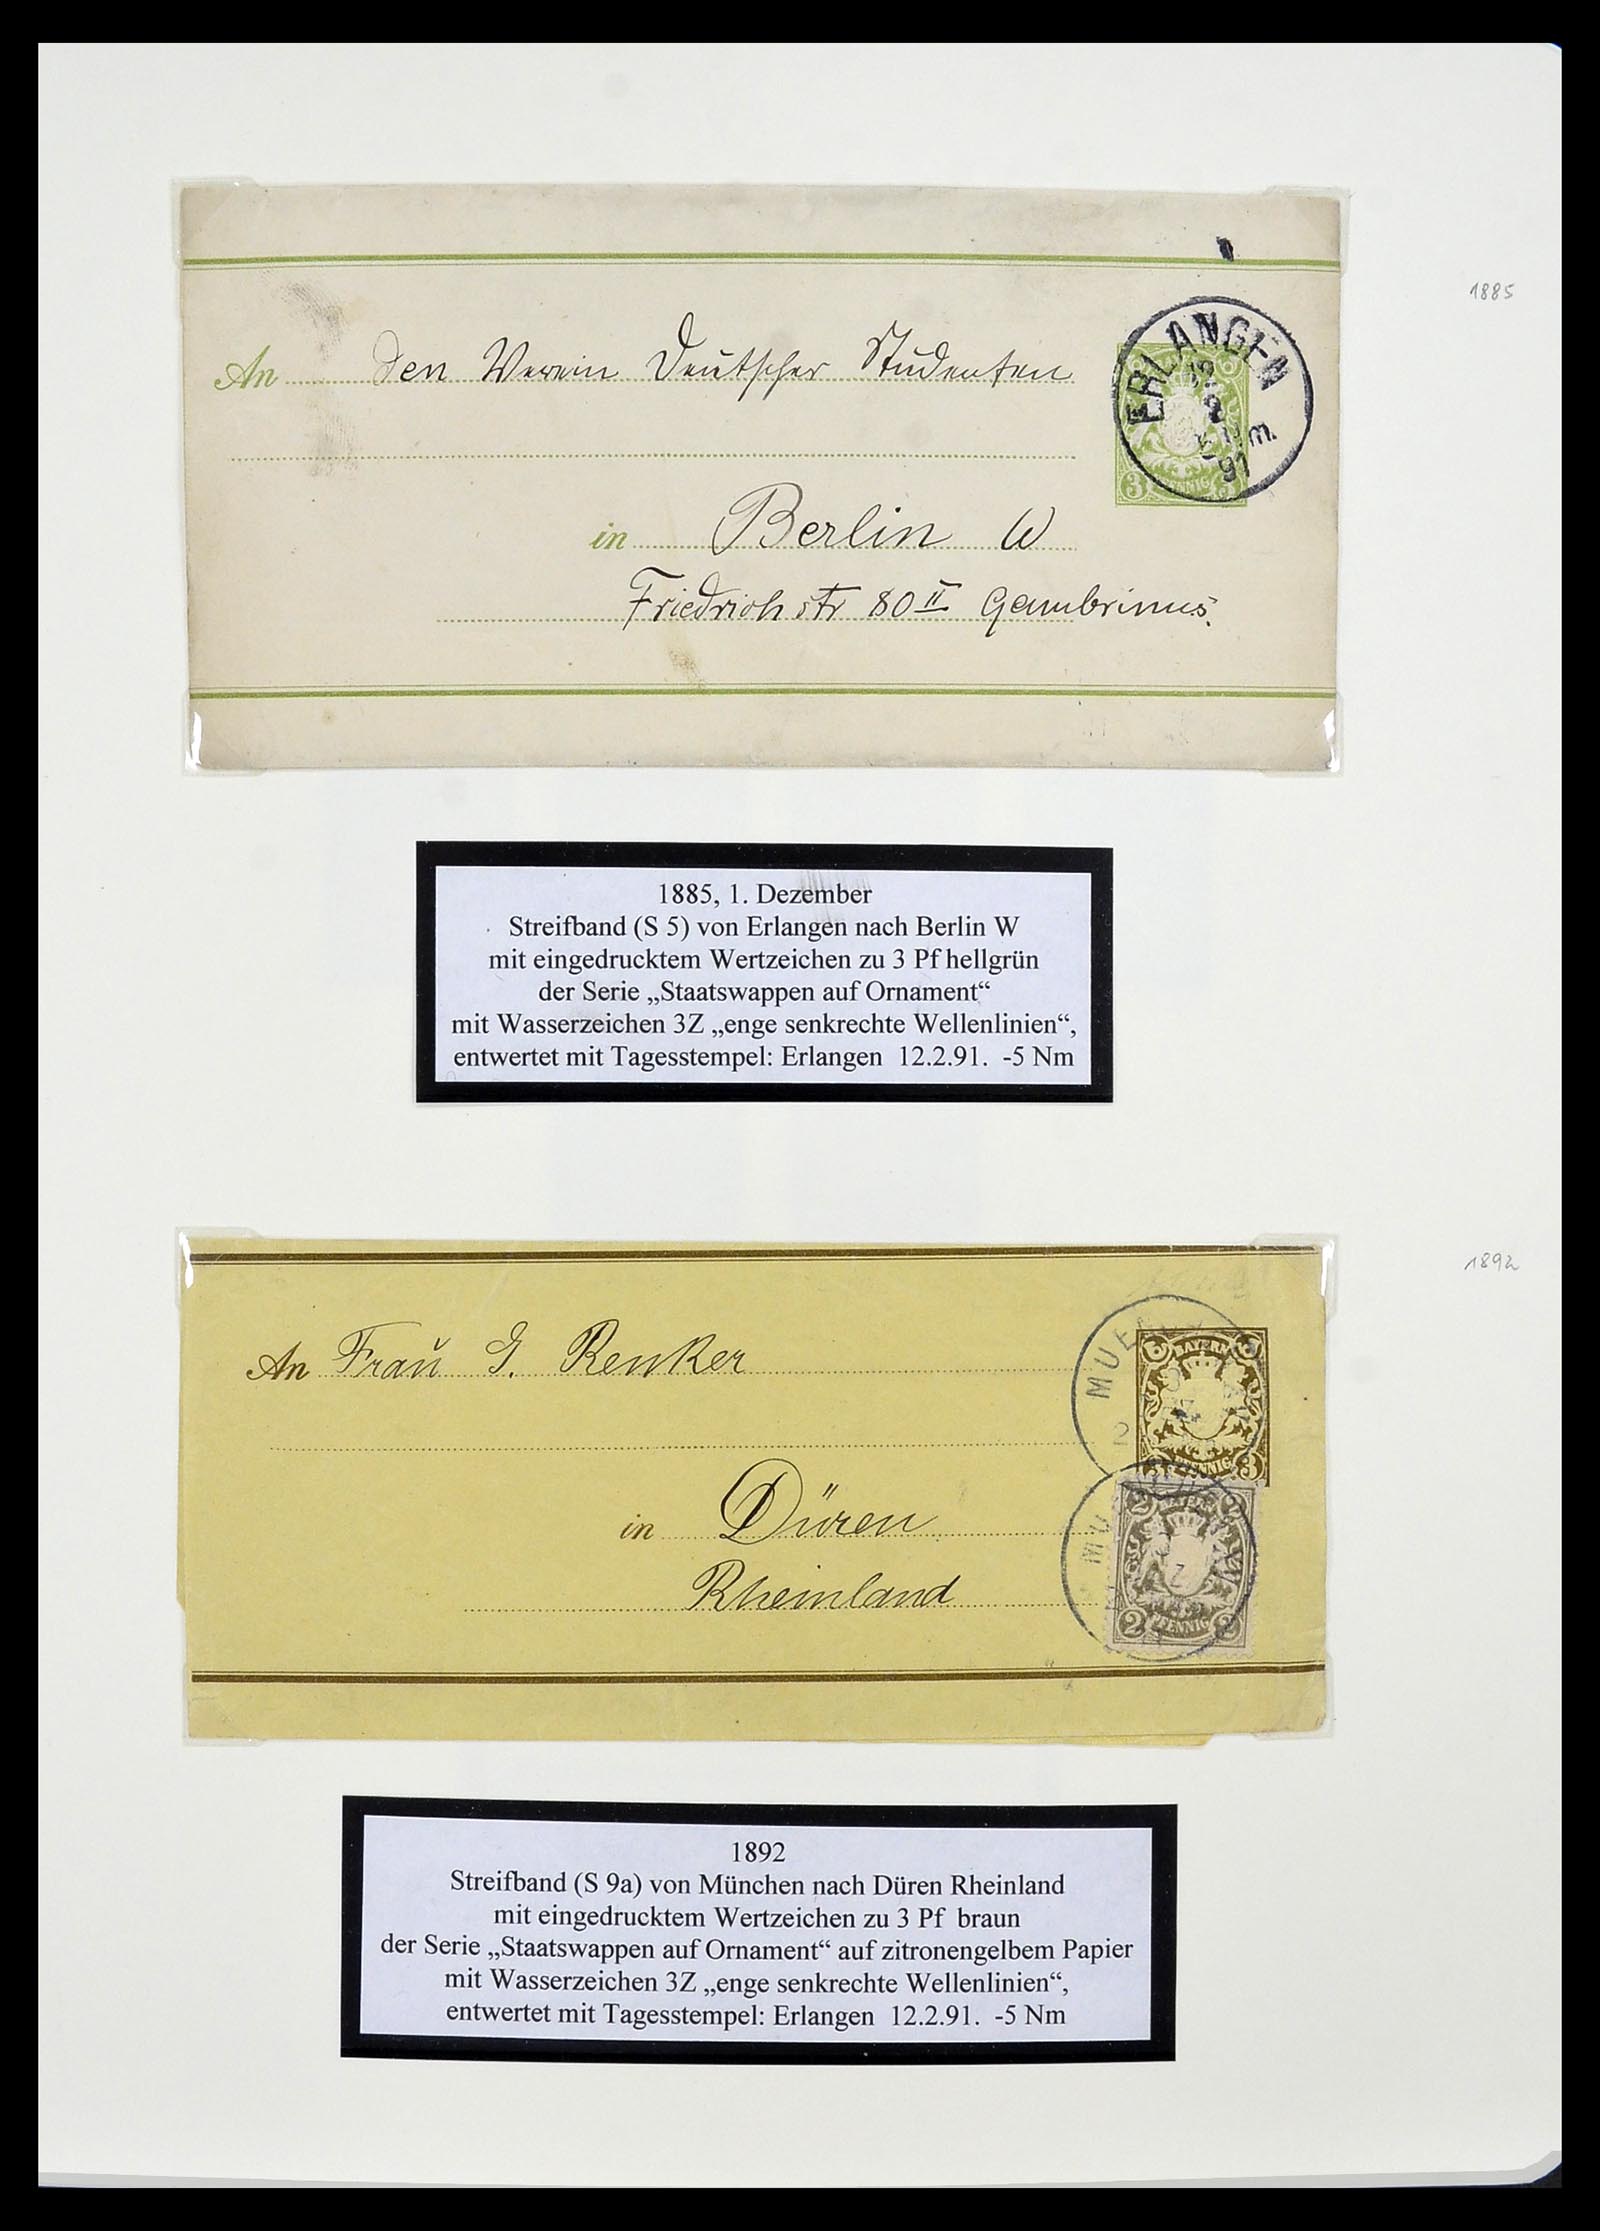 1885
An den Verein Deutscher Studenten
ERLANGEN
12
2
5 Nm.
91
3 PFENNIG 3
in Berlin W
Friedrichstr 80 II Gambrinus.
1885, 1. Dezember
Streifband (S 5) von Erlangen nach Berlin W
mit eingedrucktem Wertzeichen zu 3 Pf hellgrün
der Serie „Staatswappen auf Ornament“
mit Wasserzeichen 3Z „enge senkrechte Wellenlinien“,
entwertet mit Tagesstempel: Erlangen 12.2.91. -5 Nm
1892
An Frau G. Renker
3 BAYERN 3
3 PFENNIG 3
in Düren
Rheinland
2 BAYERN 2
2 PFENNIG 2
1892
Streifband (S 9a) von München nach Düren Rheinland
mit eingedrucktem Wertzeichen zu 3 Pf braun
der Serie „Staatswappen auf Ornament“ auf zitronengelbem Papier
mit Wasserzeichen 3Z „enge senkrechte Wellenlinien“,
entwertet mit Tagesstempel: Erlangen 12.2.91. -5 Nm